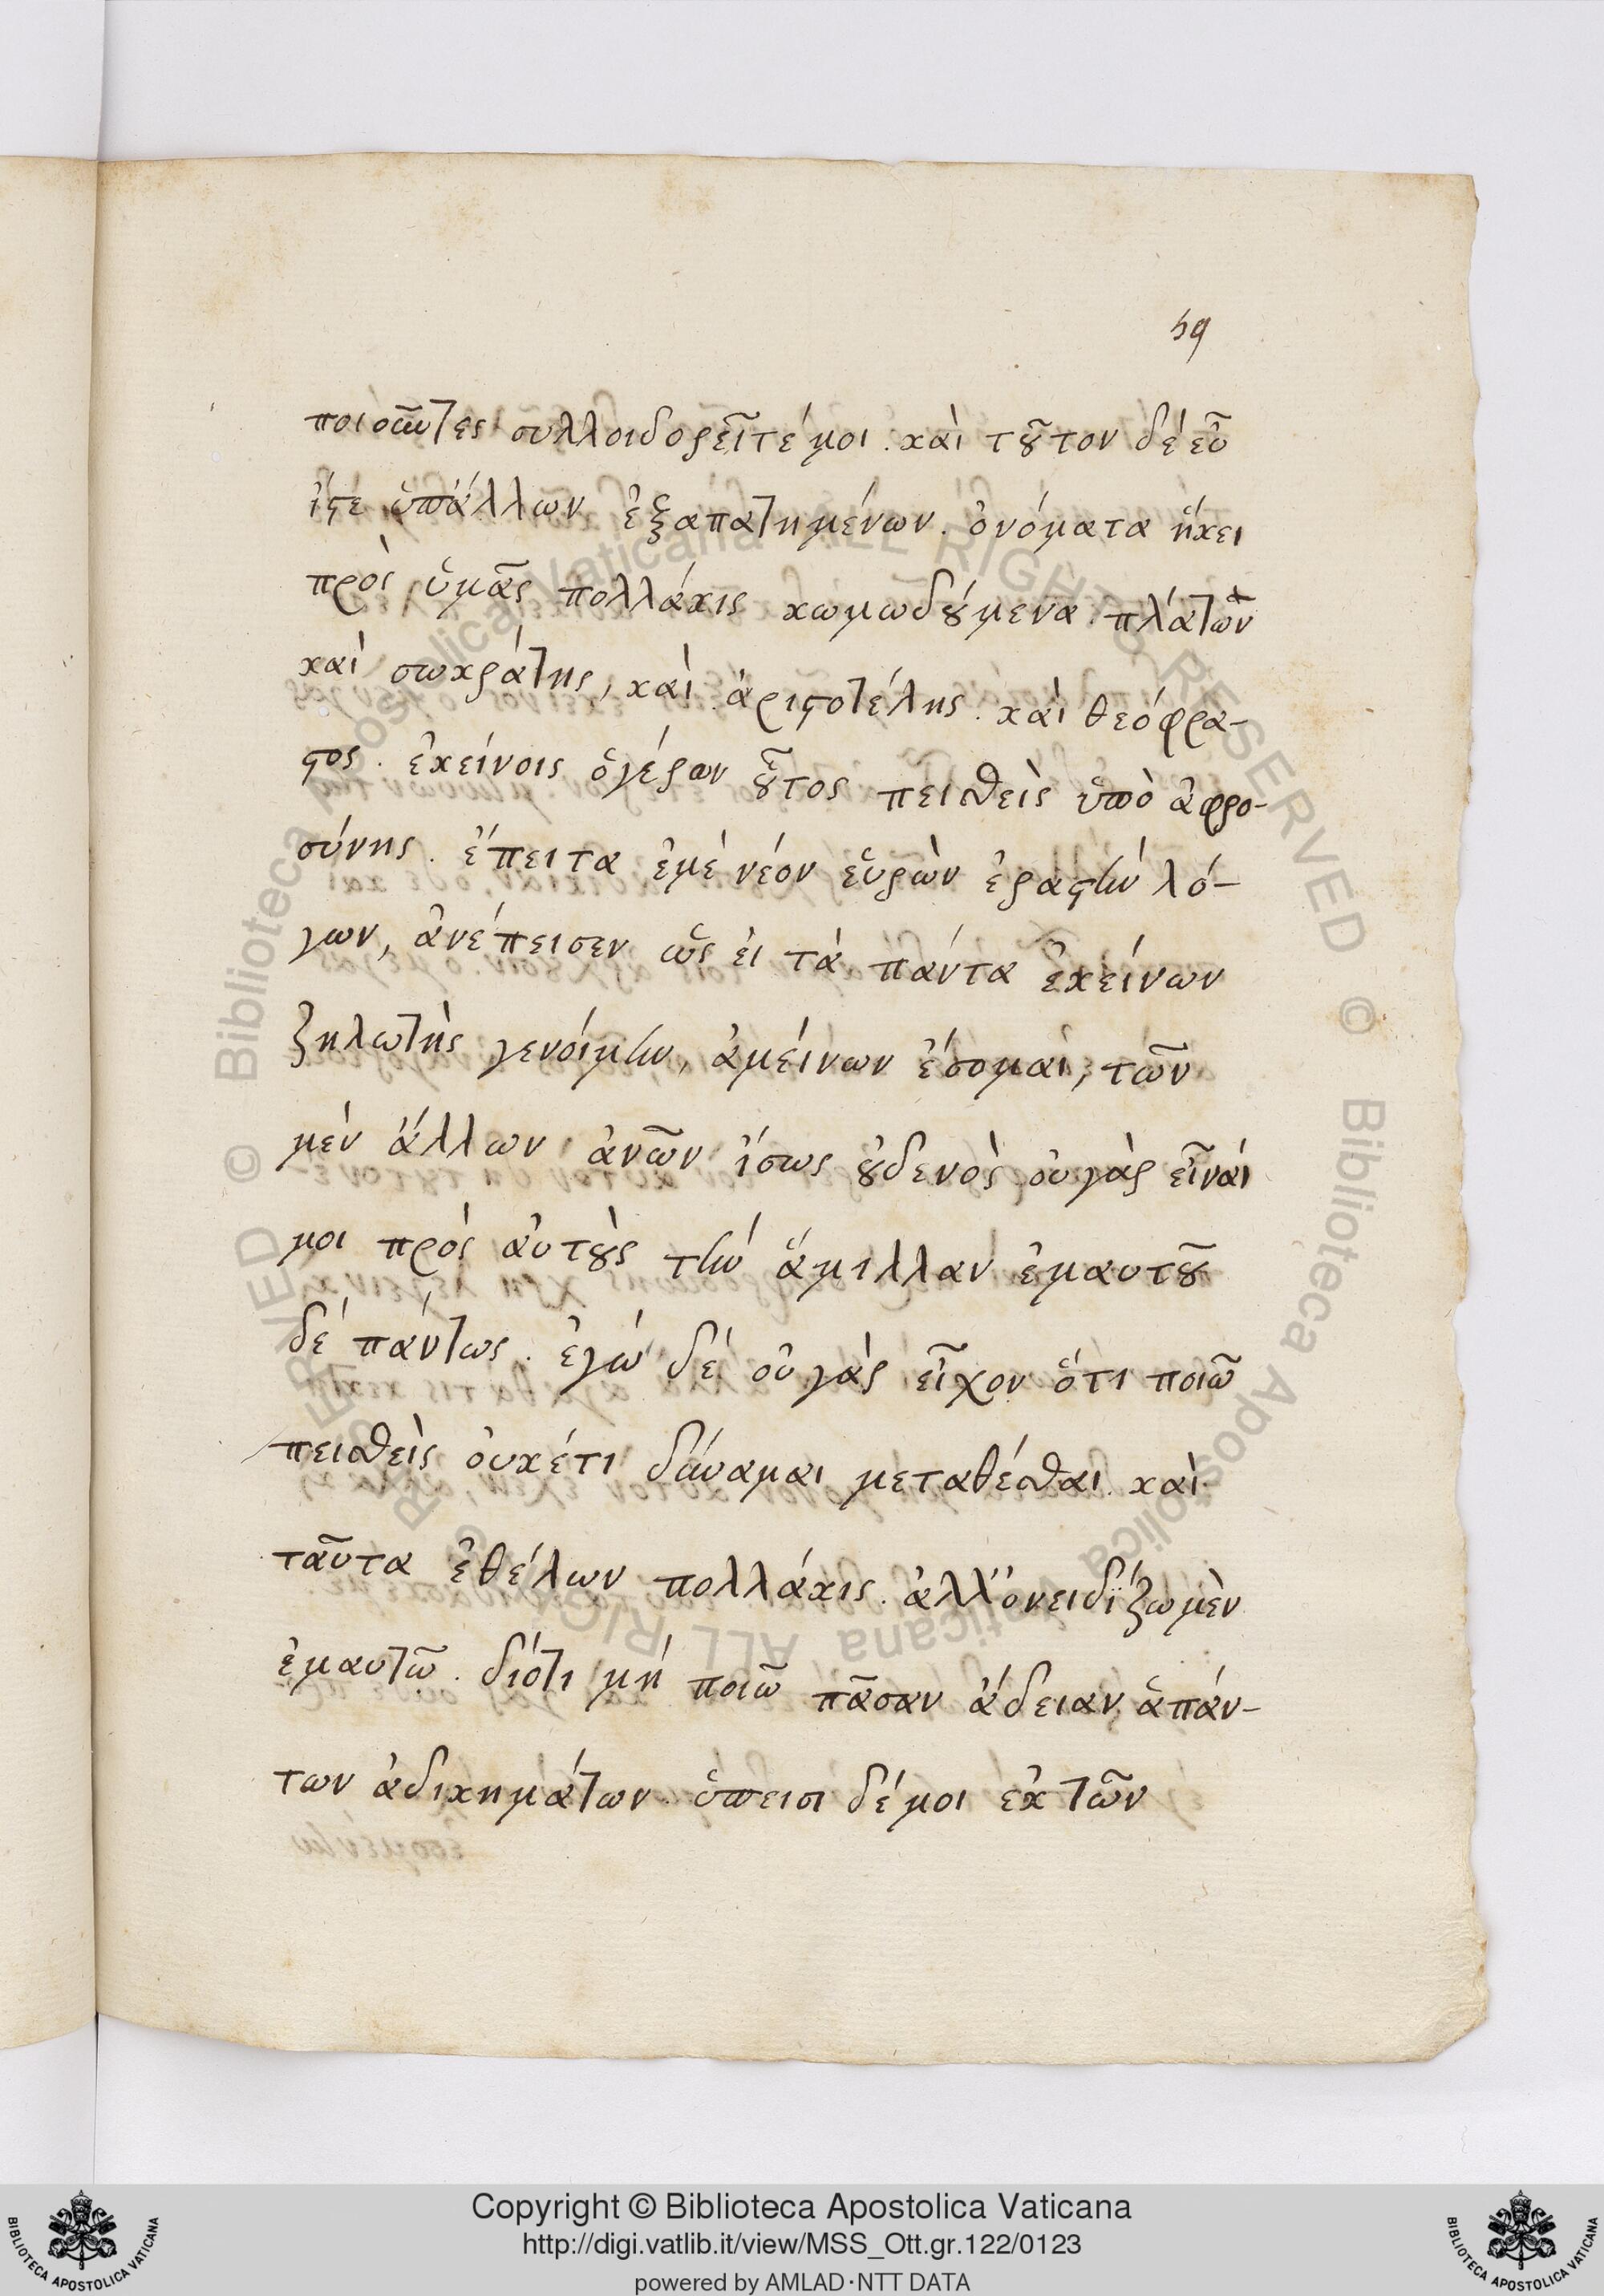 59
ποιοῦντες συλλοιδορεῖτέ μοι. καὶ τοῦτον δὲ εὖ
ἴστε ὑπ' ἄλλων ἐξαπατημένων. ὀνόματα ἥκει
πρὸς ὑμᾶς πολλάκις κωμωδούμενα πλάτων
καὶ σωκράτης, καὶ ἀριστοτέλης. καὶ θεόφρα-
στος. ἐκείνοις ὁ γέρων οὗτος πεισθεὶς ὑπὸ ἀφρο-
σύνης. ἔπειτα ἐμὲ νέον εὑρὼν ἐραστὴν λό-
γων, ἀνέπεισεν ὡς εἰ τὰ πάντα ἐκείνων
ζηλωτὴς γενοίμην, ἀμείνων ἔσομαι, τῶν
μὲν ἄλλων ἀνῶν ἴσως οὐδενὸς οὐ γὰρ εἶναί
μοι πρὸς αὐτοὺς τὴν ἅμιλλαν ἐμαυτοῦ
δὲ πάντως. ἐγὼ δὲ οὐ γὰρ εἶχον ὅτι ποιῶ
πεισθεὶς οὐκέτι δύναμαι μεταθέσθαι. καὶ
ταῦτα ἐθέλων πολλάκις. ἀλλ' ὀνειδίζω μὲν
ἐμαυτῷ. διότι μὴ ποιῶ πᾶσαν ἄδειαν ἁπάν-
των ἀδικημάτων. ὕπεισι δέ μοι ἐκ τῶν
Copyright © Biblioteca Apostolica Vaticana
http://digi.vatlib.it/view/MSS_Ott.gr.122/0123
powered by AMLAD·NTT DATA
BIBLIOTECA APOSTOLICA VATICANA
BIBLIOTECA APOSTOLICA VATICANA